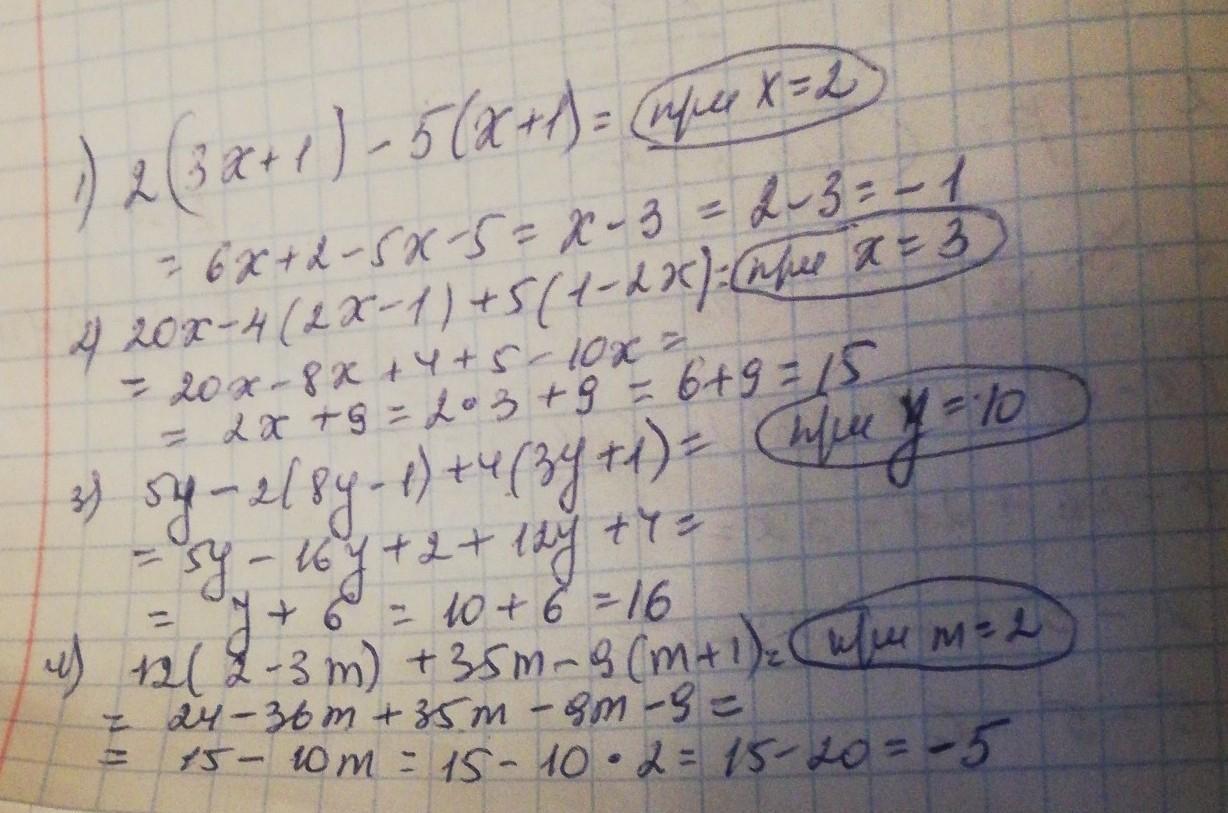 1) 2(3x+1)-5(x+1)= при x=2
= 6x+2-5x-5= x-3 = 2-3=-1
2) 20x-4(2x-1)+5(1-2x)= при x=3
= 20x-8x+4+5-10x=
= 2x+9=2•3+9=6+9=15
3) 5y-2(8y-1)+4(3y+1)= при y=10
= 5y-16y+2+12y+4=
= y+6=10+6=16
4) 12(2-3m)+35m-9(m+1)= при m=2
= 24-36m+35m-9m-9=
= 15-10m=15-10•2=15-20=-5